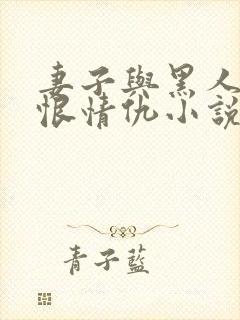 妻子與黑人
恨情仇小說
青子藍